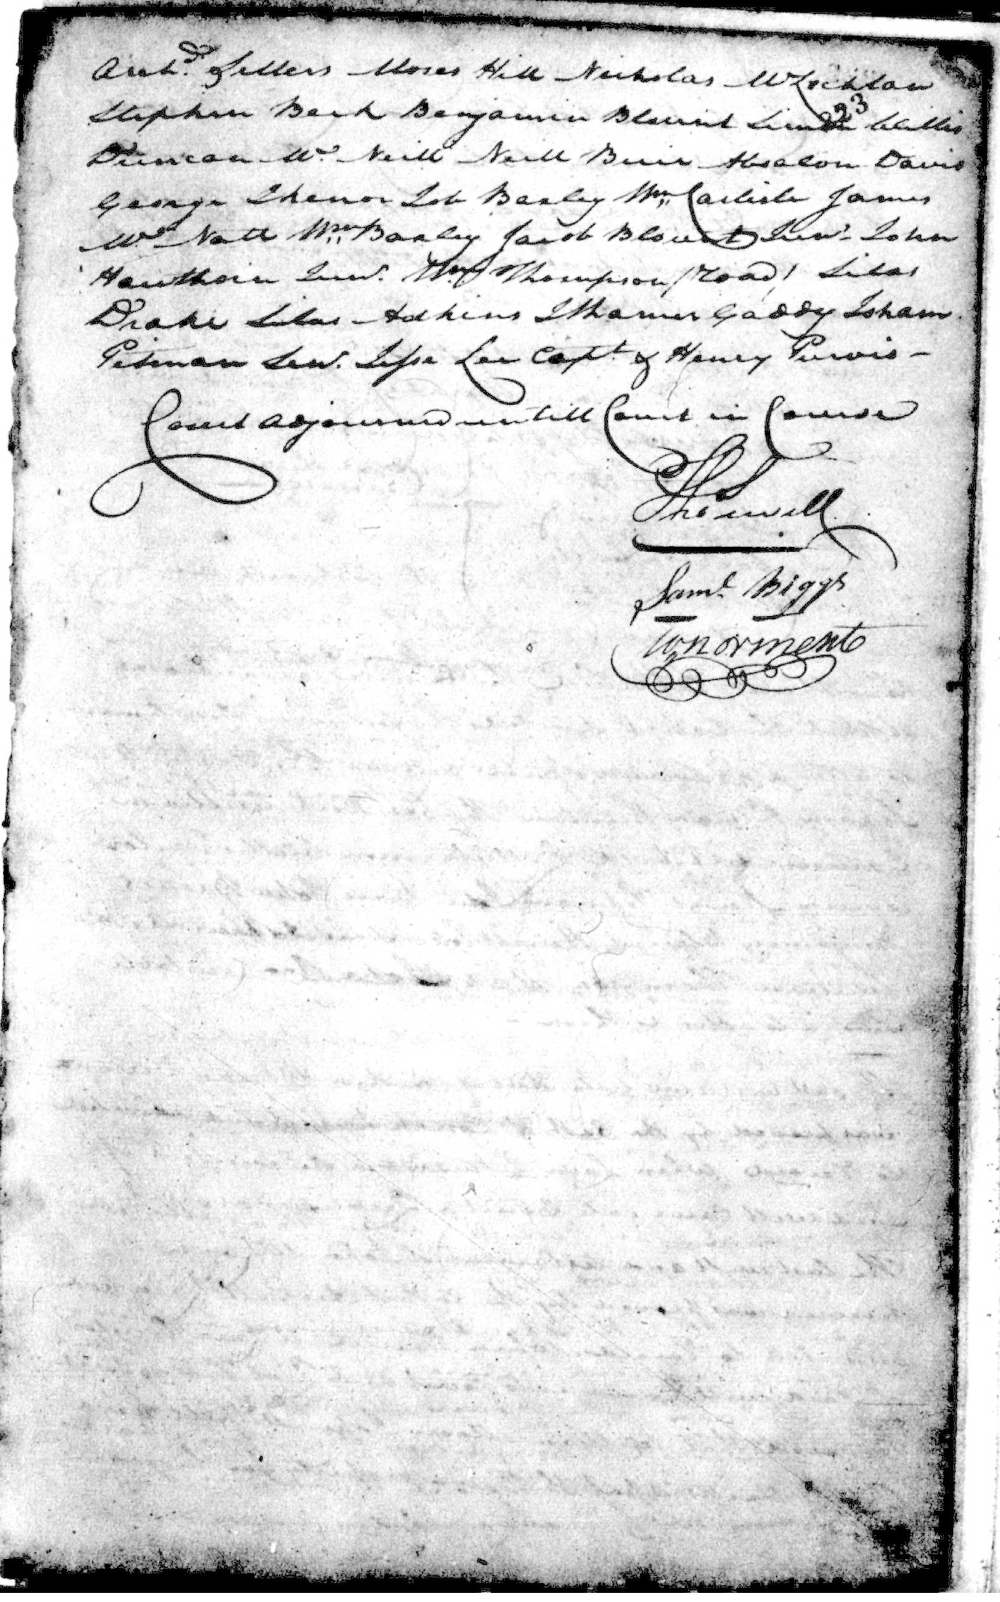 Archd. Sellers Moses Hill Nicholas McLochlan
23
Stephen Beck Benjamin Blount Willis
Duncan Mc Neill Neill Buie Absalon Davis
George Job Baxley Wm. Carlisle James
Mc Natt Wm. Baxley Jacob Blount Junr. John
Hawthorn Junr. Wm. Thompson (Road) Silas
Drake Silas Adkins Ithamer Gaddy Isham
Pitman Senr. Jesse Lee Capt. & Henry Purvis –
Court adjourned untill Court in Course
Saml. Biggs
Norment